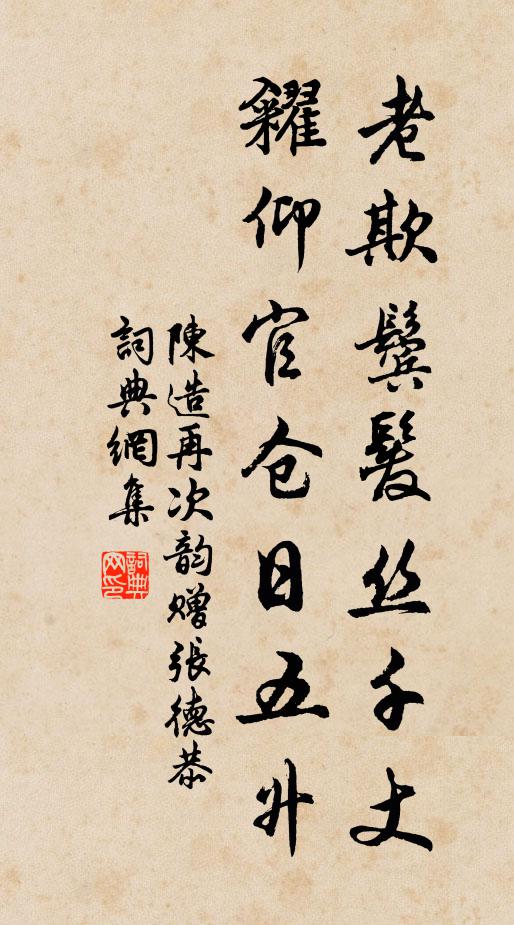 老欺鬓髮丝千丈
糴仰官仓日五升
陳造再次韵贈張德恭
詞典網集
詞典網印